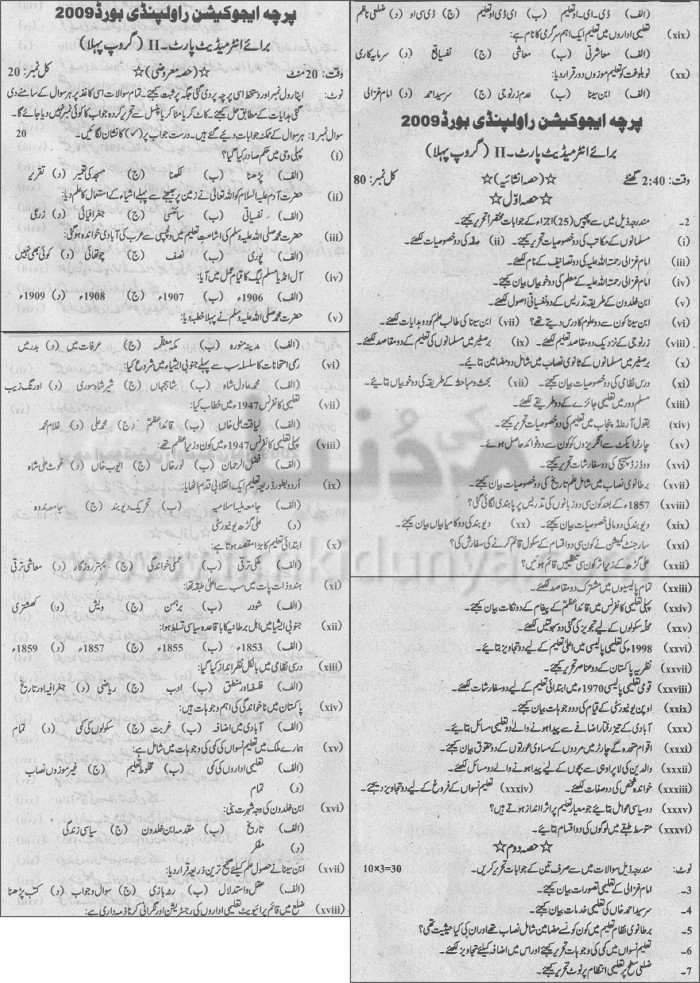 پرچہ ایجوکیشن راولپنڈی بورڈ 2009
برائے انٹرمیڈیٹ پارٹ۔ II (گروپ پہلا)
وقت: 20 منٹ ☆(حصہ معروضی)☆ کل نمبر: 20
نوٹ: اپنا رول نمبر اور دستخط اسی پرچہ پر دی گئی جگہ پر ثبت کیجئے۔ تمام سوالات اسی کاغذ پر ہر سوال کے سامنے دی
گئی ہدایات کے مطابق حل کیجئے۔ کاٹ کر یا مٹا کر یا پنسل سے تحریر کردہ جواب کا کوئی نمبر نہیں دیا جائے گا۔
سوال نمبر 1: ہر سوال کے ممکنہ جوابات دیے گئے ہیں۔ درست جواب پر (✓) کا نشان لگائیں۔ 20
(i) پہلی وحی میں حکم صادر کیا گیا؟
(الف) پڑھنا (ب) لکھنا (ج) مسجد کی تعمیر (د) تقریر
(ii) حضرت آدم علیہ السلام کو اللہ تعالیٰ نے زمین پر بھیجنے سے پہلے اشیاء کے استعمال کا علم دیا:
(الف) نفسیاتی (ب) سائنسی (ج) جغرافیائی (د) زرعی
(iii) حضرت محمد صلی اللہ علیہ وسلم کی اشاعت تعلیم میں دلچسپی سے عرب کی آبادی خواندہ ہو گئی:
(الف) پوری (ب) نصف (ج) چوتھائی (د) کوئی بھی نہیں
(iv) آل انڈیا مسلم لیگ کا قیام عمل میں آیا:
(الف) 1906ء (ب) 1907ء (ج) 1908ء (د) 1909ء
(v) حضرت محمد صلی اللہ علیہ وسلم نے پہلا خطبہ دیا:
(الف) مدینہ منورہ (ب) مکہ معظمہ (ج) عرفات میں (د) بدر میں
(vi) رسمی امتحانات کا سلسلہ سب سے پہلے جنوبی ایشیا میں شروع کیا:
(الف) محمد عادل شاہ (ب) شاہجہاں (ج) شیر شاہ سوری (د) اورنگ زیب
(vii) تعلیمی کانفرنس 1947ء میں خطاب کیا:
(الف) لیاقت علی خاں (ب) قائداعظم (ج) محمد علی (د) غلام محمد
(viii) پہلی تعلیمی کانفرنس 1947ء میں کون وزیر اعظم تھے:
(الف) فضل الرحمان (ب) نور خاں (ج) ایوب خاں (د) غوث علی شاہ
(ix) اردو بطور ذریعہ تعلیم ایک انقلابی قدم اٹھایا:
(الف) جامعہ ملیہ اسلامیہ (ب) تحریک دیوبند (ج) جامعہ ندوہ
(د) علی گڑھ یونیورسٹی
(x) ابتدائی تعلیم کا بڑا مقصد ہوتا ہے:
(الف) ملکی ترقی (ب) عملی خواندگی (ج) بہتر روزگار (د) معاشی ترقی
(xi) ہندو ذات پات میں سب سے اعلیٰ طبقہ تھا:
(الف) شودر (ب) برہمن (ج) ویش (د) کھشتری
(xii) جنوبی ایشیا میں اہل برطانیہ کا باقاعدہ سیاسی تسلط ہوا:
(الف) 1853ء (ب) 1855ء (ج) 1857ء (د) 1859ء
(xiii) درسِ نظامی میں بالکل نظر انداز کیا گیا:
(الف) فلسفہ اور منطق (ب) ادب (ج) ریاضی (د) جغرافیہ اور تاریخ
(xiv) پاکستان میں ناخواندگی کی اہم وجوہات ہیں:
(الف) آبادی میں اضافہ (ب) غربت (ج) سکولوں کی کمی (د) تمام
(xv) ہمارے ملک میں تعلیم نسواں کی کمی کی وجوہات میں شامل ہے:
(الف) تعلیمی اداروں کی کمی (ب) مخلوط تعلیم (ج) غیر موزوں نصاب
(د) تمام
(xvi) ابن خلدون کی وجہ شہرت بنی:
(الف) تاریخ (ب) مقدمہ ابن خلدون (ج) سیاسی زندگی
(د) مفکر
(xvii) ابن سینا نے حصول علم کیلئے صحیح ترین ذریعہ قرار دیا:
(الف) عقل و استدلال (ب) رٹہ بازی (ج) سوال و جواب (د) کتب پڑھنا
(xviii) ضلع میں قائم پرائیویٹ تعلیمی اداروں کی رجسٹریشن اور نگرانی کرنا ذمہ داری ہے:
(الف) ڈی۔ ای۔ او تعلیم (ب) ای ڈی او تعلیم (ج) ڈی سی او (د) ضلعی ناظم
(xix) تعلیمی اداروں میں تعلیم ایک اہم سرگرمی کا نام ہے:
(الف) معاشرتی (ب) معاشی (ج) نفسیاتی (د) سرمایہ کاری
(xx) نو بلوغت کو تعلیم موزوں دور قرار دیا:
(الف) ابن سینا (ب) عدم زرنوجی (ج) سرسید احمد (د) امام غزالی
پرچہ ایجوکیشن راولپنڈی بورڈ 2009
برائے انٹرمیڈیٹ پارٹ۔ II (گروپ پہلا)
وقت: 2:40 گھنٹے ☆(حصہ انشائیہ)☆ کل نمبر: 80
☆ حصہ اوّل ☆
2- مندرجہ ذیل میں سے پچیس (25) اجزاء کے جوابات مختصراً تحریر کیجئے۔
(i) مسلمانوں کے مکاتب کی دو خصوصیات تحریر کیجئے۔ (ii) صفہ کی دو خصوصیات لکھئے۔
(iii) امام غزالی رحمتہ اللہ علیہ کی دو تصانیف کے نام لکھئے۔
(iv) امام غزالی رحمتہ اللہ علیہ کے معلم کی دو خوبیاں بیان کیجئے۔
(v) ابن خلدون کے طریقہ تدریس کے دو نفسیاتی اصول لکھئے۔
(vi) ابن سینا کون سے دو علوم کا درس دیتے تھے؟ (vii) ابن سینا کی طالب علم کو دو ہدایات لکھئے۔
(viii) زرنوجی کے نزدیک دو مقاصد تعلیم لکھئے۔ (ix) برصغیر میں مسلمانوں کی تعلیم کے دو مقاصد لکھئے۔
(x) برصغیر میں مسلمانوں کے ثانوی نصاب میں شامل دو مضامین بتائیے۔
(xi) درس نظامی کی دو خصوصیات بیان کیجئے۔ (xii) بحث و مباحثہ کے طریقہ کی دو خوبیاں بتائیے۔
(xiii) مسلم دور میں تعلیمی جائزے کے دو طریقے لکھئے۔
(xiv) بقول آرنلڈ پنجاب میں تعلیم کی دو خصوصیات تحریر کیجئے۔
(xv) چارٹر ایکٹ سے انگریزوں کو کون سے دو فوائد حاصل ہوئے۔
(xvi) ووڈز ڈسپیچ کی دو سفارشات تحریر کیجئے۔
(xvii) برطانوی نصاب میں شامل علم تاریخ کی دو خصوصیات بیان کیجئے۔
(xviii) 1857ء کے بعد کون سی دو زبانوں کی تدریس پر پابندی لگائی گئی؟
(xix) دیوبند کی دو مالی خصوصیات بیان کیجئے۔ (xx) دیوبند کی دو کامیابیاں بیان کیجئے۔
(xxi) سارجنٹ کمیشن نے کون سی دو اقسام کے سکول قائم کرنے کی سفارش کی؟
(xxii) علی گڑھ کے زیر اثر کون سی تنظیمیں قائم ہوئیں؟
(xxiii) تمام پالیسیوں میں مشترک دو مقاصد لکھئے۔
(xxiv) پہلی تعلیمی کانفرنس میں قائداعظم کے پیغام کے دو نکات بیان کیجئے۔
(xxv) محلہ سکولوں کے لیے تجویز کی گئی دو سہولتیں لکھئے۔
(xxvi) 1998ء کی تعلیمی پالیسی میں اعلیٰ تعلیم کے لیے دو تجاویز بتائیے۔
(xxvii) نظریہ پاکستان کے دو عناصر تحریر کیجئے۔
(xxviii) قومی تعلیمی پالیسی 1970ء میں ابتدائی تعلیم کے لیے دو سفارشات لکھئے۔
(xxix) اوپن یونیورسٹی کے قیام کی دو وجوہات بیان کیجئے۔
(xxx) آبادی کے تیز رفتار اضافے سے پیدا ہونے والے دو تعلیمی مسائل بتائیے۔
(xxxi) اقوام متحدہ کے چارٹر میں مردوں کے مساوی عورتوں کے دو حقوق بیان کیجئے۔
(xxxii) والدین کی لاپرواہی سے بچوں کے لیے پیدا ہونے والے دو مسائل لکھئے۔
(xxxiii) خواندہ شخص کی دو صفات لکھئے۔ (xxxiv) تعلیم نسواں کے فروغ کے لیے دو تجاویز دیجئے۔
(xxxv) دو سیاسی عوامل بتائیے جو معیار تعلیم پر اثر انداز ہوتے ہیں؟
(xxxvi) متوسط طبقے میں لوگوں کی دو اقسام بتائیے۔
☆ حصہ دوم ☆
نوٹ: مندرجہ ذیل سوالات میں سے صرف تین کے جوابات تحریر کریں۔ 10×3=30
3- امام غزالی کے تعلیمی تصورات بیان کیجئے۔
4- سرسید احمد خاں کی تعلیمی خدمات بیان کیجئے۔
5- برطانوی نظام تعلیم میں کون کون سے مضامین شامل نصاب تھے اور ان کی کیا حیثیت تھی؟
6- تعلیم نسواں میں کمی کی وجوہات تحریر کیجئے اور اس میں اضافہ کیلئے تجاویز لکھئے۔
7- ضلعی سطح پر تعلیمی انتظام پر نوٹ تحریر کیجئے۔